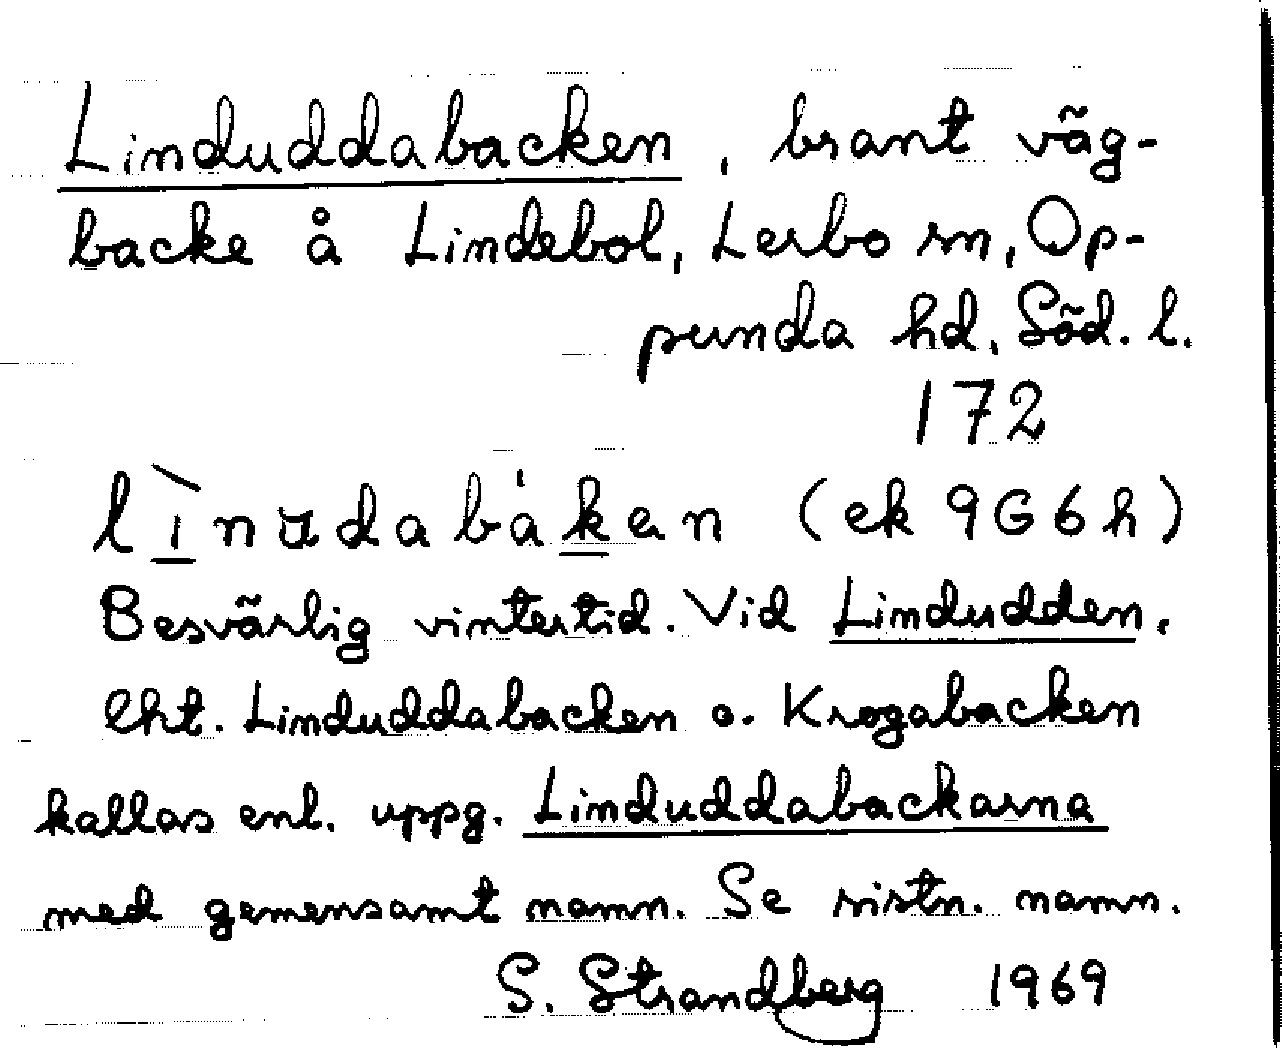 Linduddabacken, brant väg-
backe å Lindebol, Lerbo sn, Op-
punda hd, Söd. l.
172
lìnudabàken (ek 9G6h)
Besvärlig vintertid. Vid Lindudden.
Eht. Linduddabacken o. Krogabacken
kallas enl. uppg. Linduddabackarna
med gemensamt namn. Se sistn. namn.
S. Strandberg 1969